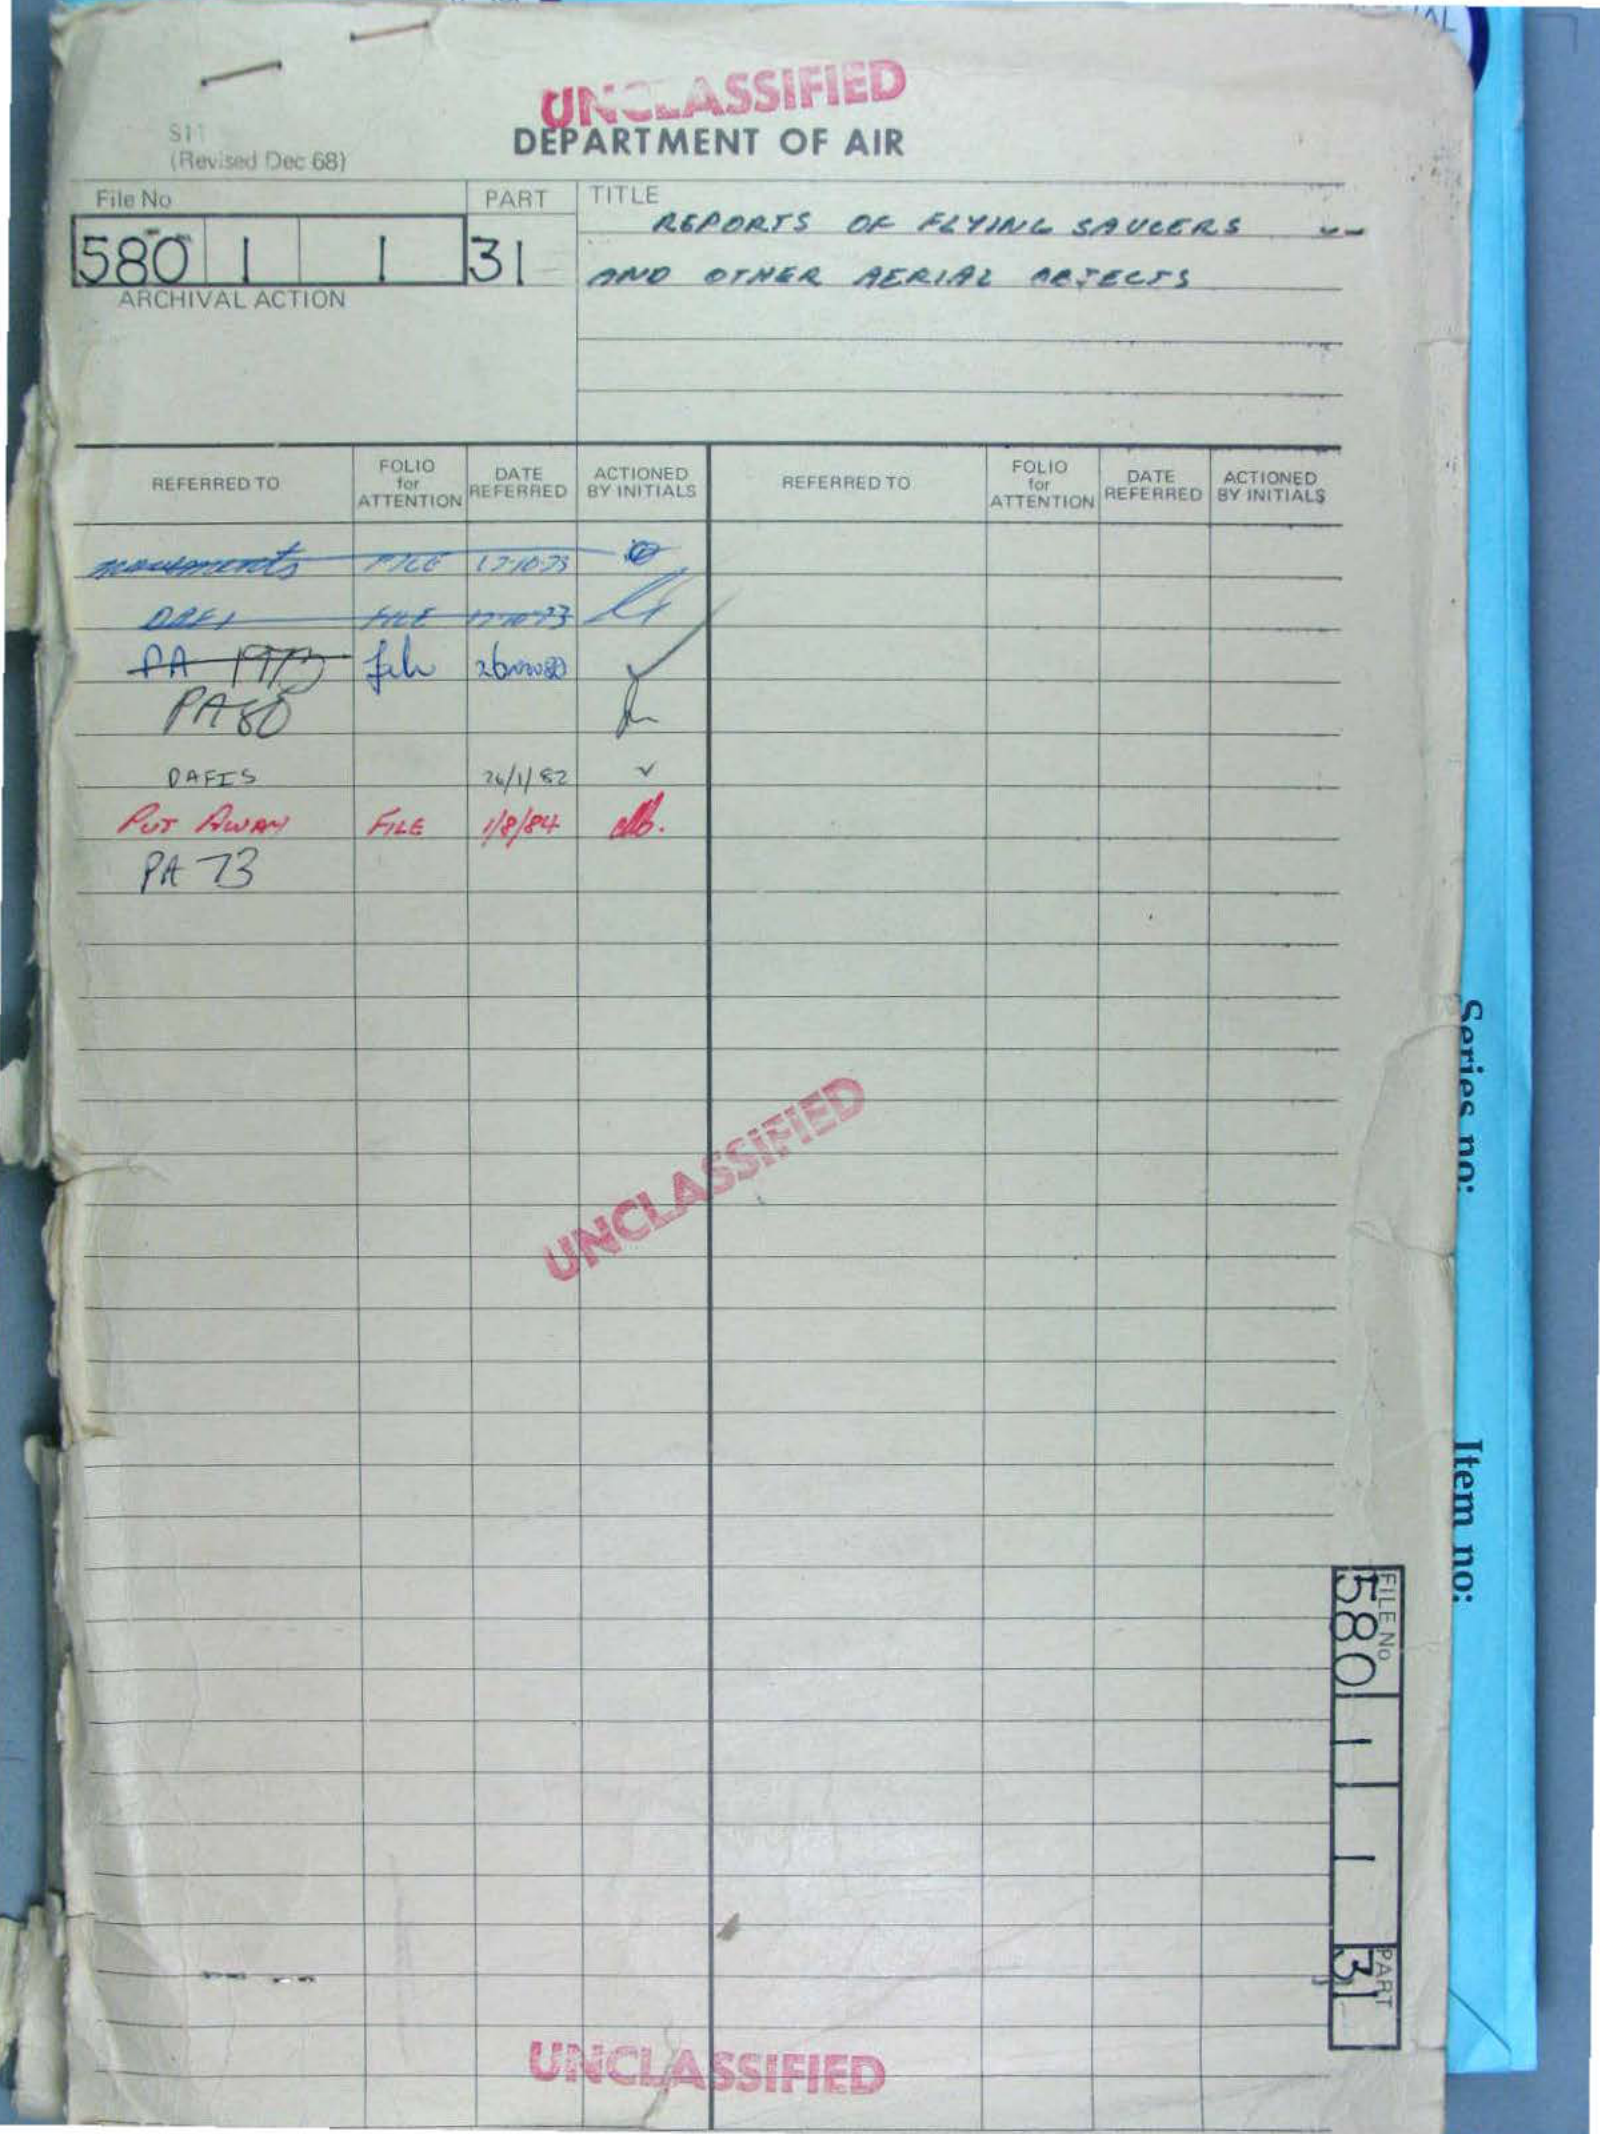 UNCLASSIFIED
DEPARTMENT OF AIR
S11
(Revised Dec 68)
File No
PART
TITLE
580 1 1 31
REPORTS OF FLYING SAUCERS
AND OTHER AERIAL OBJECTS
ARCHIVAL ACTION
REFERRED TO FOLIO for ATTENTION DATE REFERRED ACTIONED BY INITIALS REFERRED TO FOLIO for ATTENTION DATE REFERRED ACTIONED BY INITIALS
movements FILE 17-10-73
DAFI FILE 17-10-73
PA 1973 file
PA 80
DAFIS 26/1/82
PUT AWAY FILE 1/8/84
PA 73
UNCLASSIFIED
Series no:
Item no:
FILE No 580 1 1 PART 31
UNCLASSIFIED